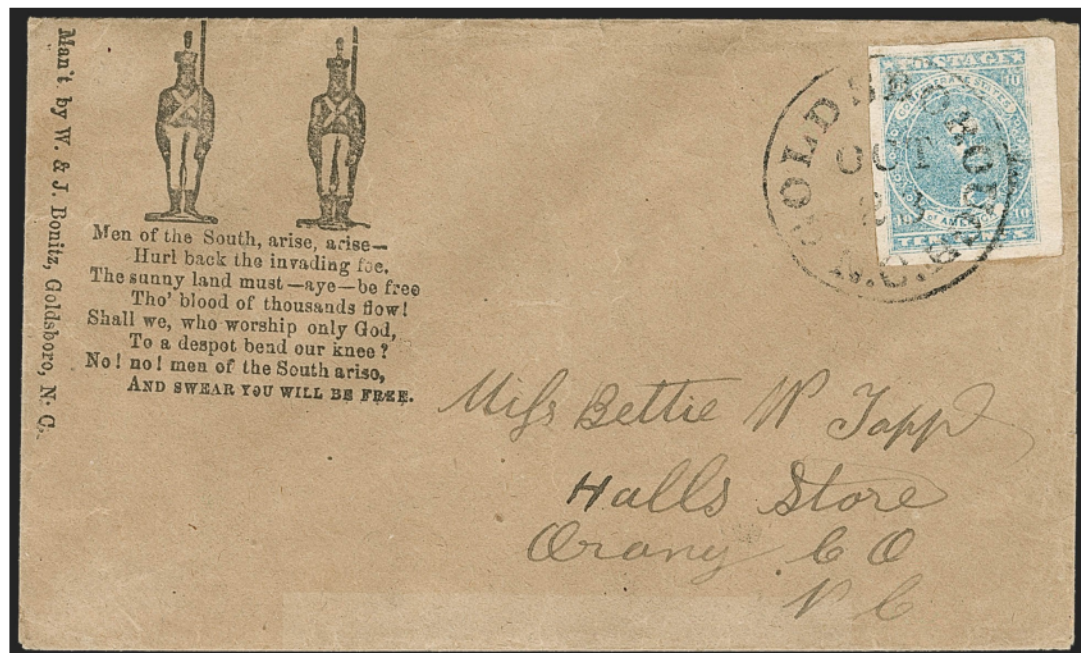 Man't by W. & J. Bonitz, Goldsboro, N. C.
Men of the South, arise, arise—
Hurl back the invading foe.
The sunny land must—aye—be free
Tho' blood of thousands flow!
Shall we, who worship only God,
To a despot bend our knee?
No! no! men of the South ariso,
AND SWEAR YOU WILL BE FREE.
GOLDSBOROUGH
OCT
N.C.
POSTAGE
10
CONFEDERATE STATES
OF AMERICA
10 10
TEN CENTS
Miss Bettie W Tapp
Halls Store
Orang CO
N C